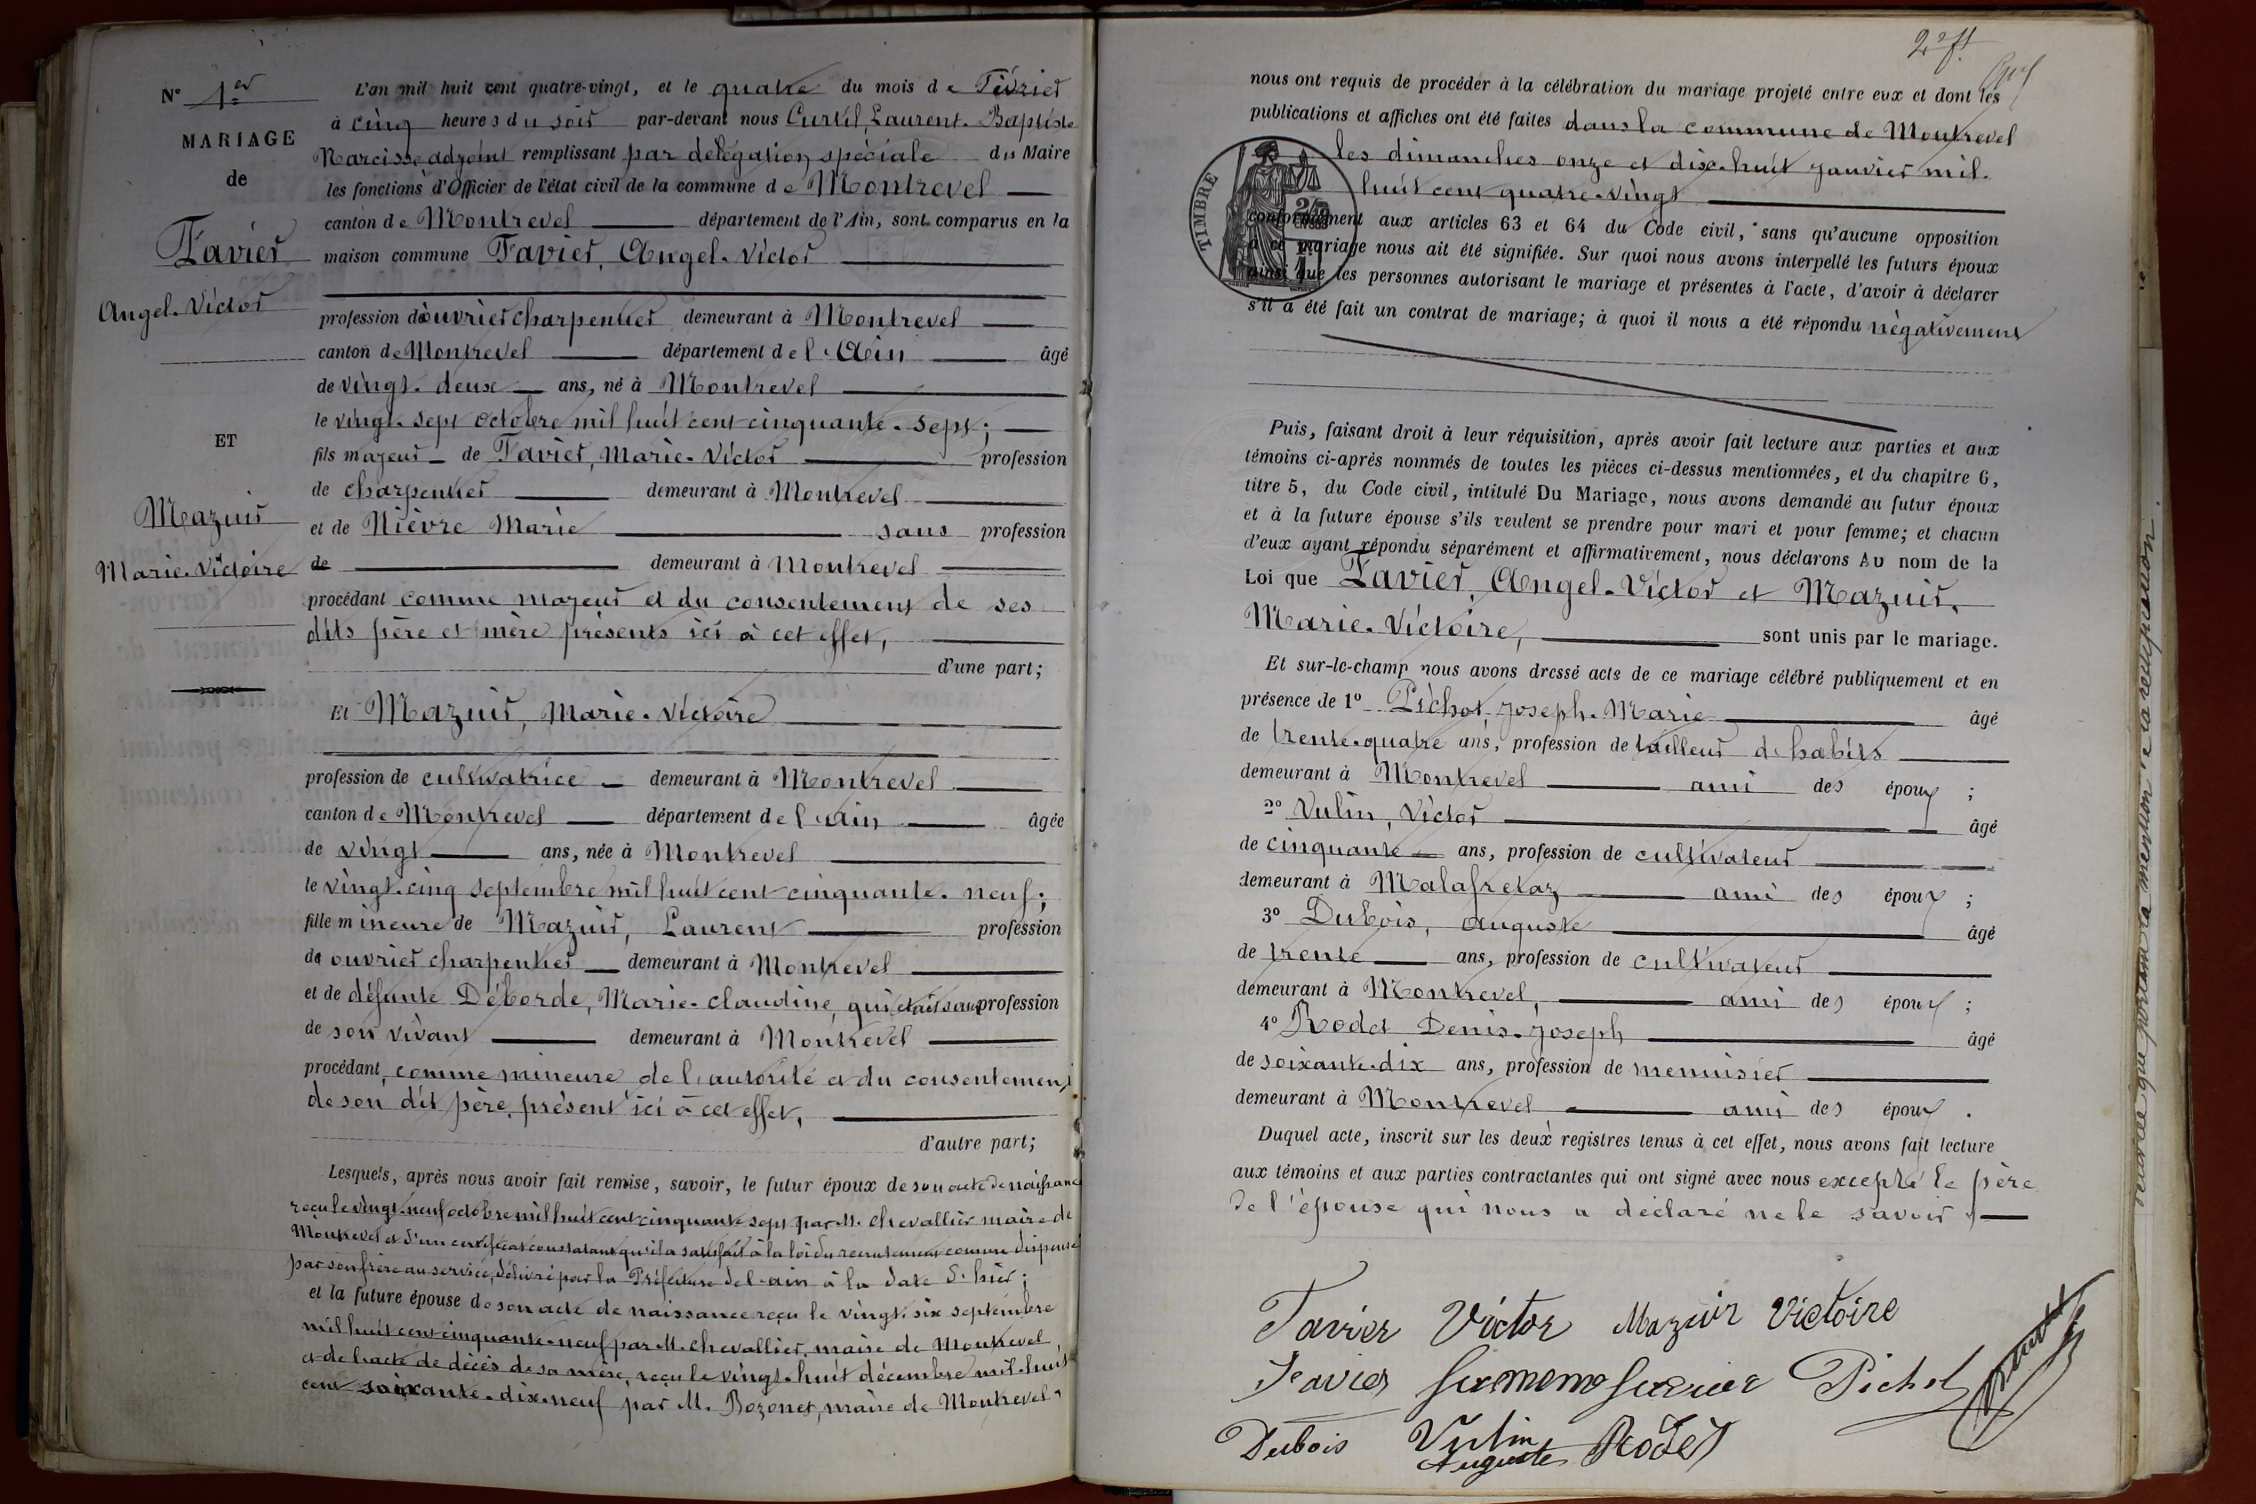 N° 1er
MARIAGE
de
Favier
Angel-Victor
ET
Mazuir
Marie-Victoire
L'an mil huit cent quatre-vingt, et le quatre du mois de Février
à cinq heures du soir par-devant nous Curtil, Laurent-Baptiste
Narcisse adjoint remplissant par délégation spéciale du Maire
les fonctions d'Officier de l'état civil de la commune de Montrevel
canton de Montrevel département de l'Ain, sont comparus en la
maison commune Favier, Angel-Victor
profession d'ouvrier charpentier demeurant à Montrevel
canton de Montrevel département de l'Ain âgé
de vingt-deux ans, né à Montrevel
le vingt-sept octobre mil huit cent cinquante-sept;
fils majeur de Favier, Marie-Victor profession
de charpentier demeurant à Montrevel
et de Nièvre Marie sans profession
de demeurant à Montrevel
procédant comme majeur et du consentement de ses
dits père et mère présents ici à cet effet,
d'une part;
Et Mazuir, Marie-Victoire
profession de cultivatrice demeurant à Montrevel
canton de Montrevel département de l'ain âgée
de vingt ans, née à Montrevel
le vingt-cinq septembre mil huit cent cinquante-neuf;
fille mineure de Mazuir, Laurent profession
de ouvrier charpentier demeurant à Montrevel
et de défunte Déborde, Marie-claudine, qui était sans profession
de son vivant demeurant à Montrevel
procédant, comme mineure de l'autorité et du consentement
de son dit père, présent ici à cet effet,
d'autre part;
Lesquels, après nous avoir fait remise, savoir, le futur époux de son acte de naissance
reçu le vingt-neuf octobre mil huit cent cinquante sept par M. Chevallier maire de
Montrevel et d'un certificat constatant qu'il a satisfait à la loi du recrutement comme dispensé
par son frère au service, délivré par la Préfecture de l'ain à la date d'hier;
et la future épouse de son acte de naissance reçu le vingt-six septembre
mil huit cent cinquante-neuf par M. Chevallier, maire de Montrevel
et de l'acte de décès de sa mère, reçu le vingt-huit décembre mil-huit
cent soixante-dix-neuf par M. Bozonet, maire de Montrevel
2e ft
nous ont requis de procéder à la célébration du mariage projeté entre eux et dont les
publications et affiches ont été faites dans la commune de Montrevel
les dimanches onze et dix-huit janvier mil-
huit cent quatre-vingt
TIMBRE
conformément aux articles 63 et 64 du Code civil, sans qu'aucune opposition
à ce mariage nous ait été signifiée. Sur quoi nous avons interpellé les futurs époux
ainsi que les personnes autorisant le mariage et présentes à l'acte, d'avoir à déclarer
s'il a été fait un contrat de mariage; à quoi il nous a été répondu négativement
Puis, faisant droit à leur réquisition, après avoir fait lecture aux parties et aux
témoins ci-après nommés de toutes les pièces ci-dessus mentionnées, et du chapitre 6,
titre 5, du Code civil, intitulé Du Mariage, nous avons demandé au futur époux
et à la future épouse s'ils veulent se prendre pour mari et pour femme; et chacun
d'eux ayant répondu séparément et affirmativement, nous déclarons Au nom de la
Loi que Favier, Angel-Victor et Mazuir,
Marie-Victoire, sont unis par le mariage.
Et sur-le-champ nous avons dressé acte de ce mariage célébré publiquement et en
présence de 1° Pichot, Joseph-Marie âgé
de trente-quatre ans, profession de tailleur d'habits
demeurant à Montrevel ami des époux ;
2° Vulin, Victor âgé
de cinquante ans, profession de cultivateur
demeurant à Malafretaz ami des époux ;
3° Dubois, auguste âgé
de trente ans, profession de cultivateur
demeurant à Montrevel, ami des époux ;
4° Rodet Denis-Joseph âgé
de soixante-dix ans, profession de menuisier
demeurant à Montrevel ami des époux .
Duquel acte, inscrit sur les deux registres tenus à cet effet, nous avons fait lecture
aux témoins et aux parties contractantes qui ont signé avec nous excepté le père
de l'épouse qui nous a déclaré ne le savoir
Favier Victor Mazuir Victoire
Favier Pichot
Dubois Vulin Rodet
Auguste